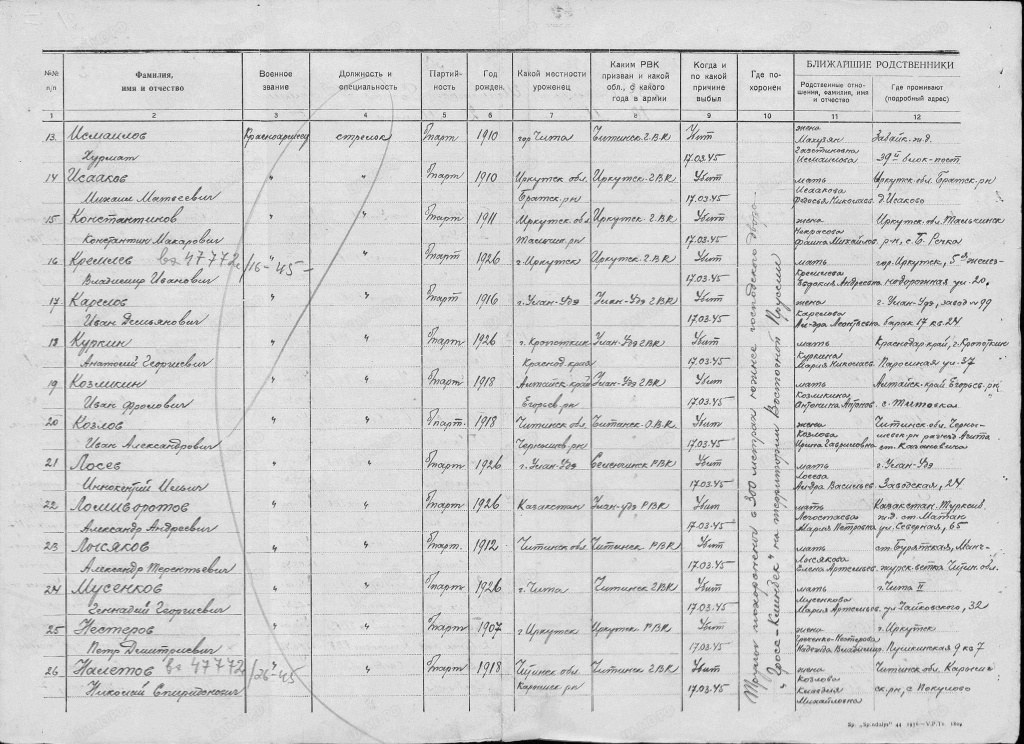 №№ п/п
Фамилия, имя и отчество
Военное звание
Должность и специальность
Партийность
Год рожден.
Какой местности уроженец
Каким РВК призван и какой обл., с какого года в армии
Когда и по какой причине выбыл
Где похоронен
БЛИЖАЙШИЕ РОДСТВЕННИКИ
Родственные отношения, фамилия, имя и отчество
Где проживают (подробный адрес)
1 2 3 4 5 6 7 8 9 10 11 12
13 Исмаилов Красноармеец стрелок б/парт 1910 гор Чита Читинск ГВК Убит жена Забайк. ж.д.
Хурмат 17.03.45 Исмаилова 39й блок-пост
14 Исааков " " б/парт 1910 Иркутск обл. Иркутск ГВК Убит мать Иркутск. обл. Братск. рн
Михаил Матвеевич Братск. рн 17.03.45 Исаакова д Исаково
15 Константинов " " б/парт 1911 Иркутск обл Иркутск ГВК Убит жена Иркутск. обл.
Константин Макарович 17.03.45 Некрасова Фаина Михайлов. р-н, с. Б. Речка
16 Кремлев вх 47772с/16-45 " " б/парт 1926 г. Иркутск Иркутск ГВК Убит мать гор. Иркутск, 5я желез-
Владимир Иванович 17.03.45 Кремлева Евдокия Андреевна нодорожная ул-20.
17 Карелов " " б/парт 1916 г. Улан-Удэ Улан-Удэ ГВК Убит жена г. Улан-Удэ, завод №99
Иван Демьянович 17.03.45 Карелова Леонтьевна барак 17 кв. 24
18 Куркин " " б/парт 1926 г. Кропоткин Улан-Удэ ГВК Убит мать Краснодар край, г. Кропоткин
Анатолий Георгиевич Краснод края 17.03.45 Куркина Мария Николаев. ул-37
19 Козликин " " б/парт 1918 Алтайск край Улан-Удэ ГВК Убит мать Алтайск. край Егорьев. рн
Иван Фролович Егорьев. рн 17.03.45 Козликина Антонина
20 Козлов " " б/парт. 1918 Читинск обл. Читинск О.В.К Убит жена Читинск. обл. Черны-
Иван Александрович Чернышев. рн 17.03.45 Козлова Ирина Гавриловна
21 Лосев " " б/парт 1926 г. Улан-Удэ Селенгинск РВК Убит мать г. Улан-Удэ
Иннокентий Ильич 17.03.45 Лосева Васильев Заводская, 24
22 Ломиворотов " " б/парт 1926 Казахстан Улан-Удэ РВК Убит мать Казахстан. Турксиб.
Александр Андреевич 17.03.45 Мария Петровна ул. Северная, 65
23 Лысяков " " б/парт. 1912 Читинск обл Читинск РВК Убит мать ст. Бурятская, Мань-
Александр Терентьевич 17.03.45 Лысякова Елена Артемьев. чжурск. ветка Читин. обл.
24 Мусенков " " б/парт 1926 г. Чита Читинск ГВК Убит мать г. Чита II
Геннадий Георгиевич 17.03.45 Мусенкова Мария Артемьев. ул Чайковского, 32
25 Нестеров " " б/парт 1907 г Иркутск Иркутск РВК Убит жена г. Иркутск
Петр Дмитриевич 17.03.45 Надежда Владимир. Пушкинская 9 кв 7
26 Налетов вх 47772/26-45 " " б/парт 1918 Читинск обл. Читинск ГВК Убит жена Читинск обл. Карымс
Николай Спиридонович Карымск рн 17.03.45 Козлова Клавдия Михайловна ск. рн,
похоронен в 300 метрах южнее господского двора
"Гросс-Клинбек" на территории Восточной Пруссии